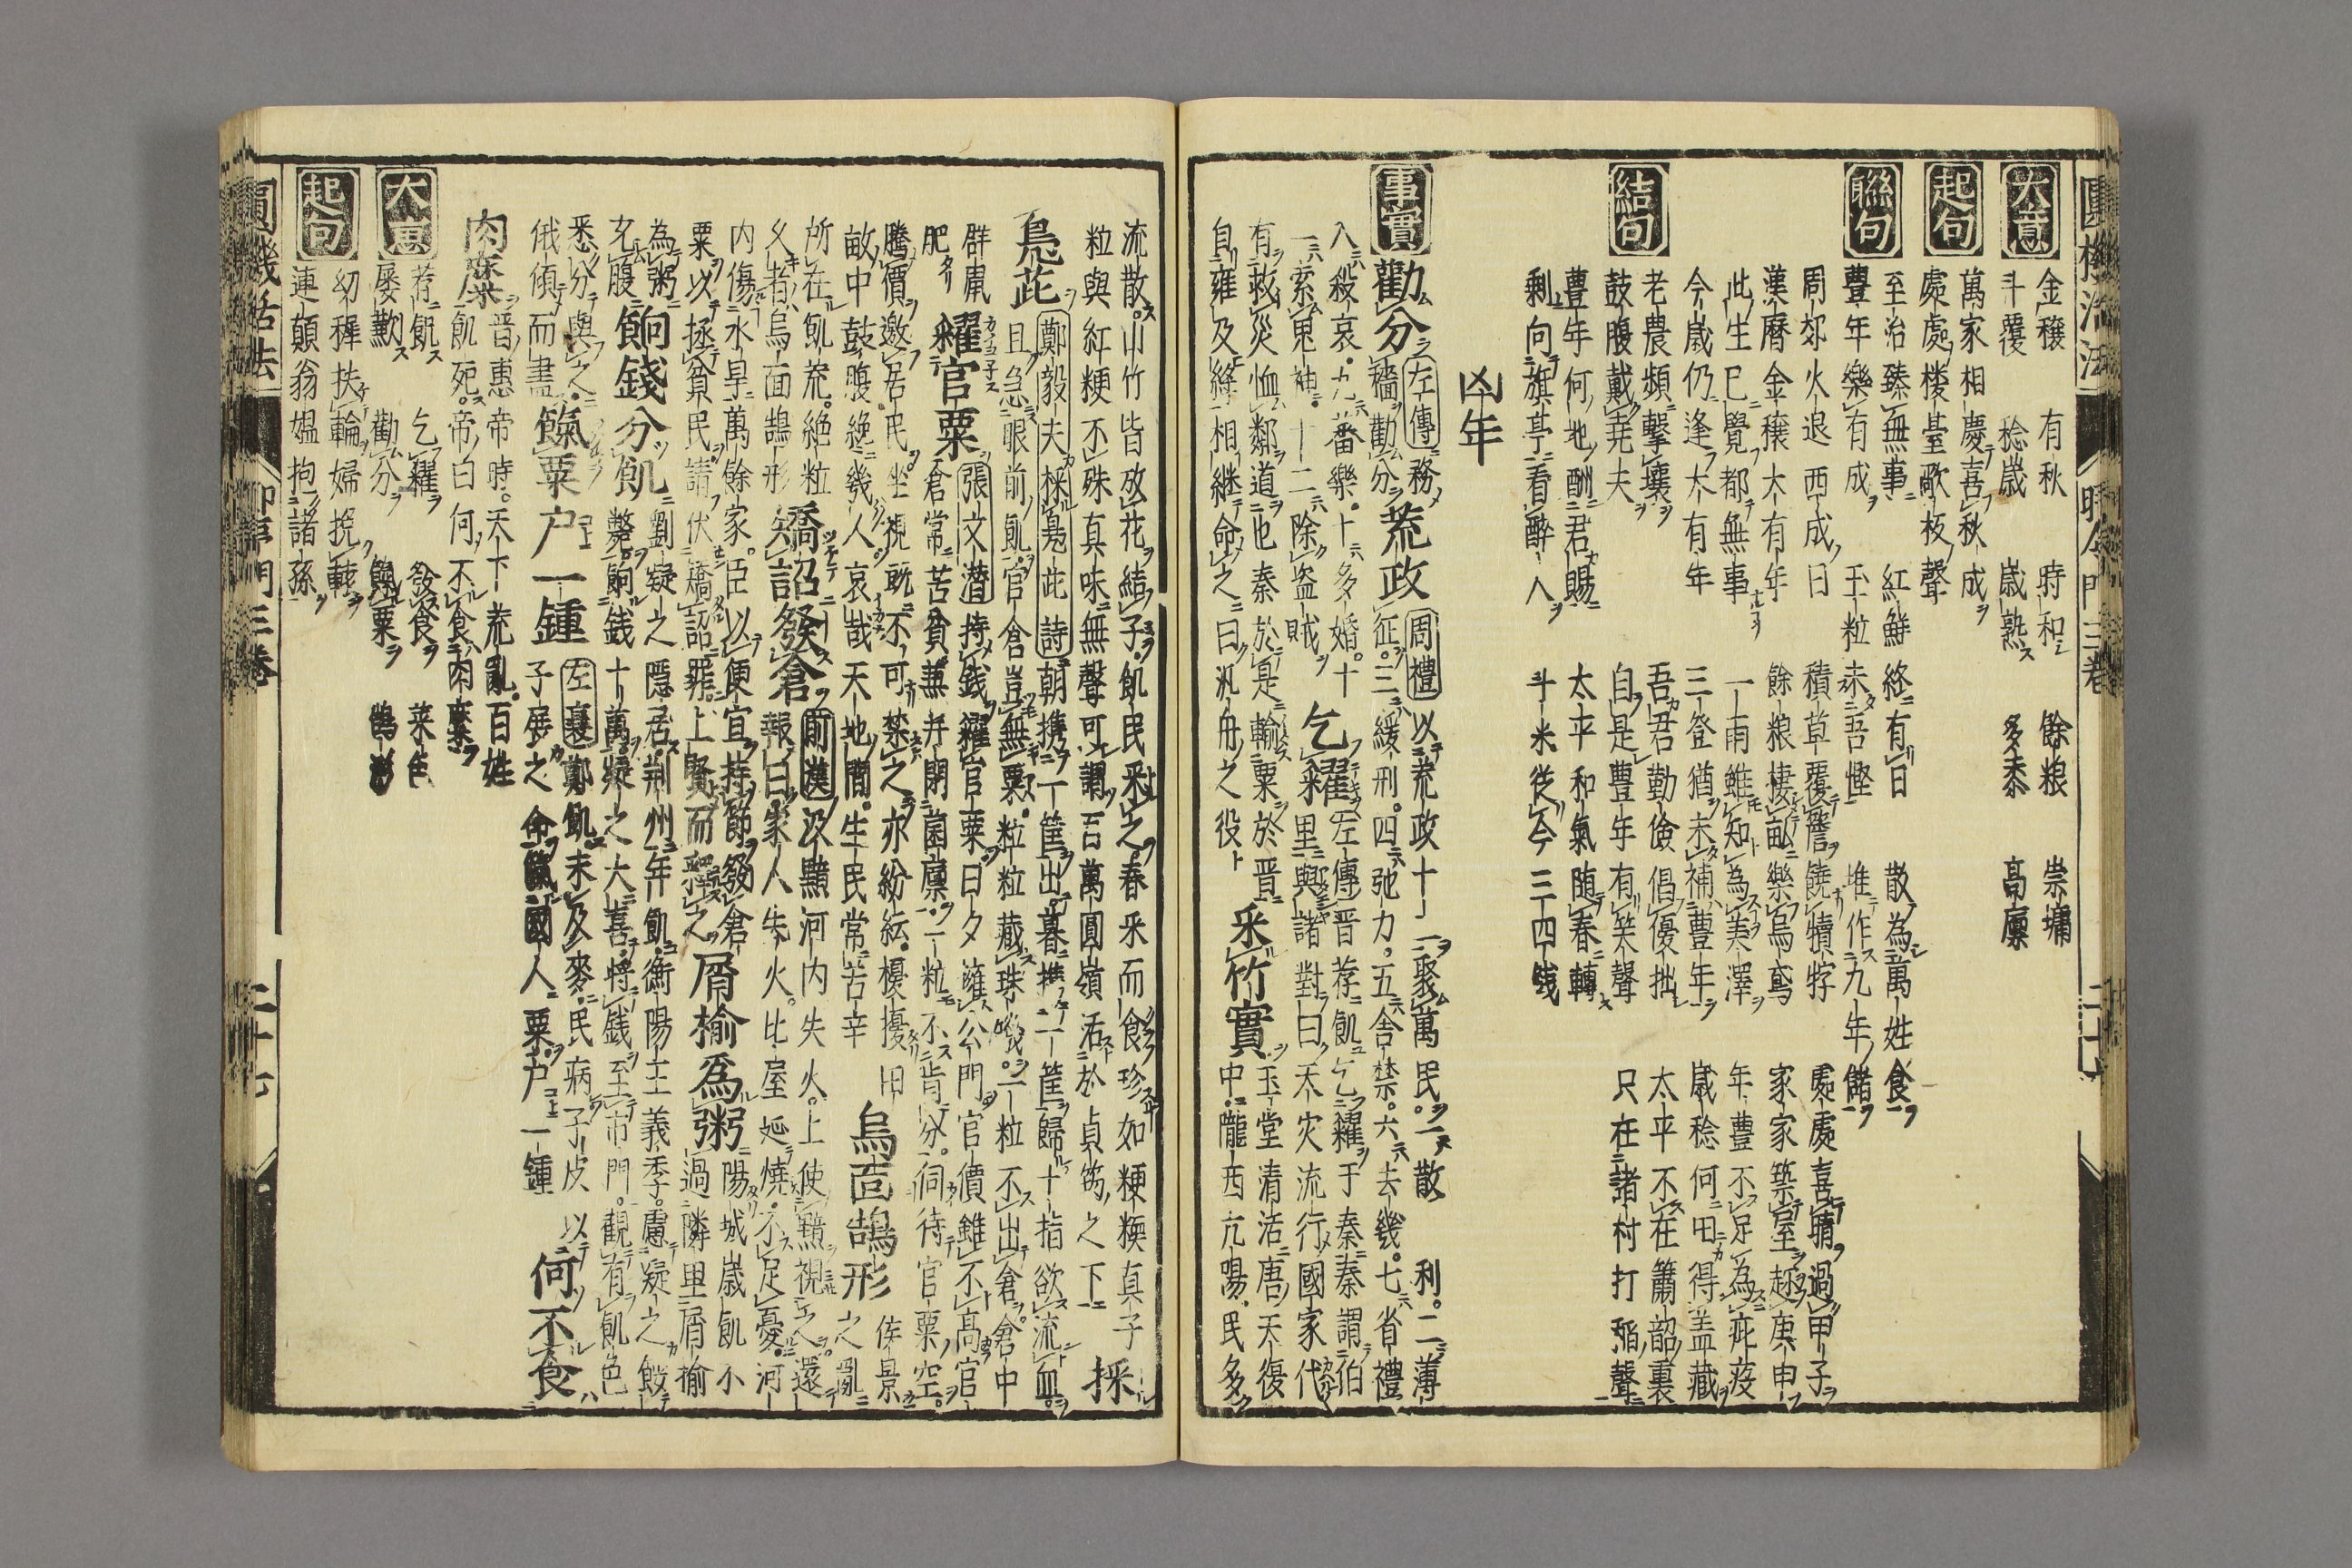 圓機活法 時令門三卷 二十七
大意 金穰 有秋 時和 餘粮 崇墉
斗覆 稔歲 歲熟 多黍 高廩
起句 萬家相慶喜秋成
處處樓臺歌板聲
聯句 至治臻無事 紅鮮終有日 散為萬姓食
豐年樂有成 玉粒未吾慳 堆作九年儲
周郊火退西成日 積草覆簷饒犢牸 處處喜晴過甲子
漢曆金穰大有年 餘粮棲畝樂烏鳶 家家築室趂庚申
此生已覺都無事 一雨雖知為美澤 年豐不足為疵疫
今歲仍逢大有年 三登猶未補豐年 歲稔何曾得蓋藏
老農頻擊壤 吾君勤儉倡優拙 太平不在簫韶裏
結句 鼓腹戴堯夫 自是豐年有笑聲 只在諸村打稻聲
豐年何地酬君賜 太平和氣随春轉
剩向旗亭看醉人 斗米從今三四錢
凶年
事實 勸分 左傳務穡勸分 荒政 周禮以荒政十二聚萬民一散利二薄
征三緩刑四弛力五舍禁六去幾七省禮
八殺哀九蕃樂十多婚十
一索鬼神十二除盗賊 乞糴 左傳晋荐飢乞糴于秦秦謂伯
里與諸對曰天灾流行國家代
有救災恤鄰道也秦於是輸粟於晋
自雍及絳相継命之曰汎舟之役 采竹實 玉堂清活唐天復
中隴西亢陽民多
流散山竹皆放花結子飢民采之舂米而食珍如粳糯真子
粒與紅粳不殊真味無聲可謂百萬圓嶺活於貞筠之下 採
鳧茈 鄭毅夫採鳧茈詩朝携一筐出暮携一筐歸十指欲流血
且急眼前飢官倉豈無粟粒粒藏珠璣一粒不出倉倉中
群鼠肥 糴官粟 張文潜持錢糴官粟日夕擁公門官價雖不高官
倉常苦貧兼并閉囷廪一粒不肯分伺待官粟空
騰價邀居民坐視既不可禁之亦紛紜擾擾田
畝中鼓腹絶幾人哀哉天地間生民常苦辛 烏面鵠形 侯景之亂
所在飢荒絶粒
父者烏面鵠形 矯詔發倉 前漢汲黯河内失火上使黯視之還
報曰家人失火比屋延燒不足憂河
内傷水旱萬餘家臣以便宜持節發倉
粟以拯貧民請伏矯詔罪上賢而釋之 屑榆為粥 陽城歲飢不
過隣里屑榆
為粥
充腹 餉錢分飢 劉凝之隱居荊州年飢衡陽王義季慮凝之餓
斃餉錢十萬凝之大喜將錢至市門觀有飢色
悉分與之 餼粟戶一鍾 左襄鄭飢未及麥民病子皮以
子展之命餼國人粟戶一鍾
俄傾而盡 何不食
肉糜 晋惠帝時天下荒亂百姓
飢死帝曰何不食肉糜
大意 荐飢 乞糴 發食 菜色
屡歉 勸分 餼粟 鵠形
起句 幼穉扶輪婦挽轅
連顛翁媼抱諸孫
圓機活法 三卷